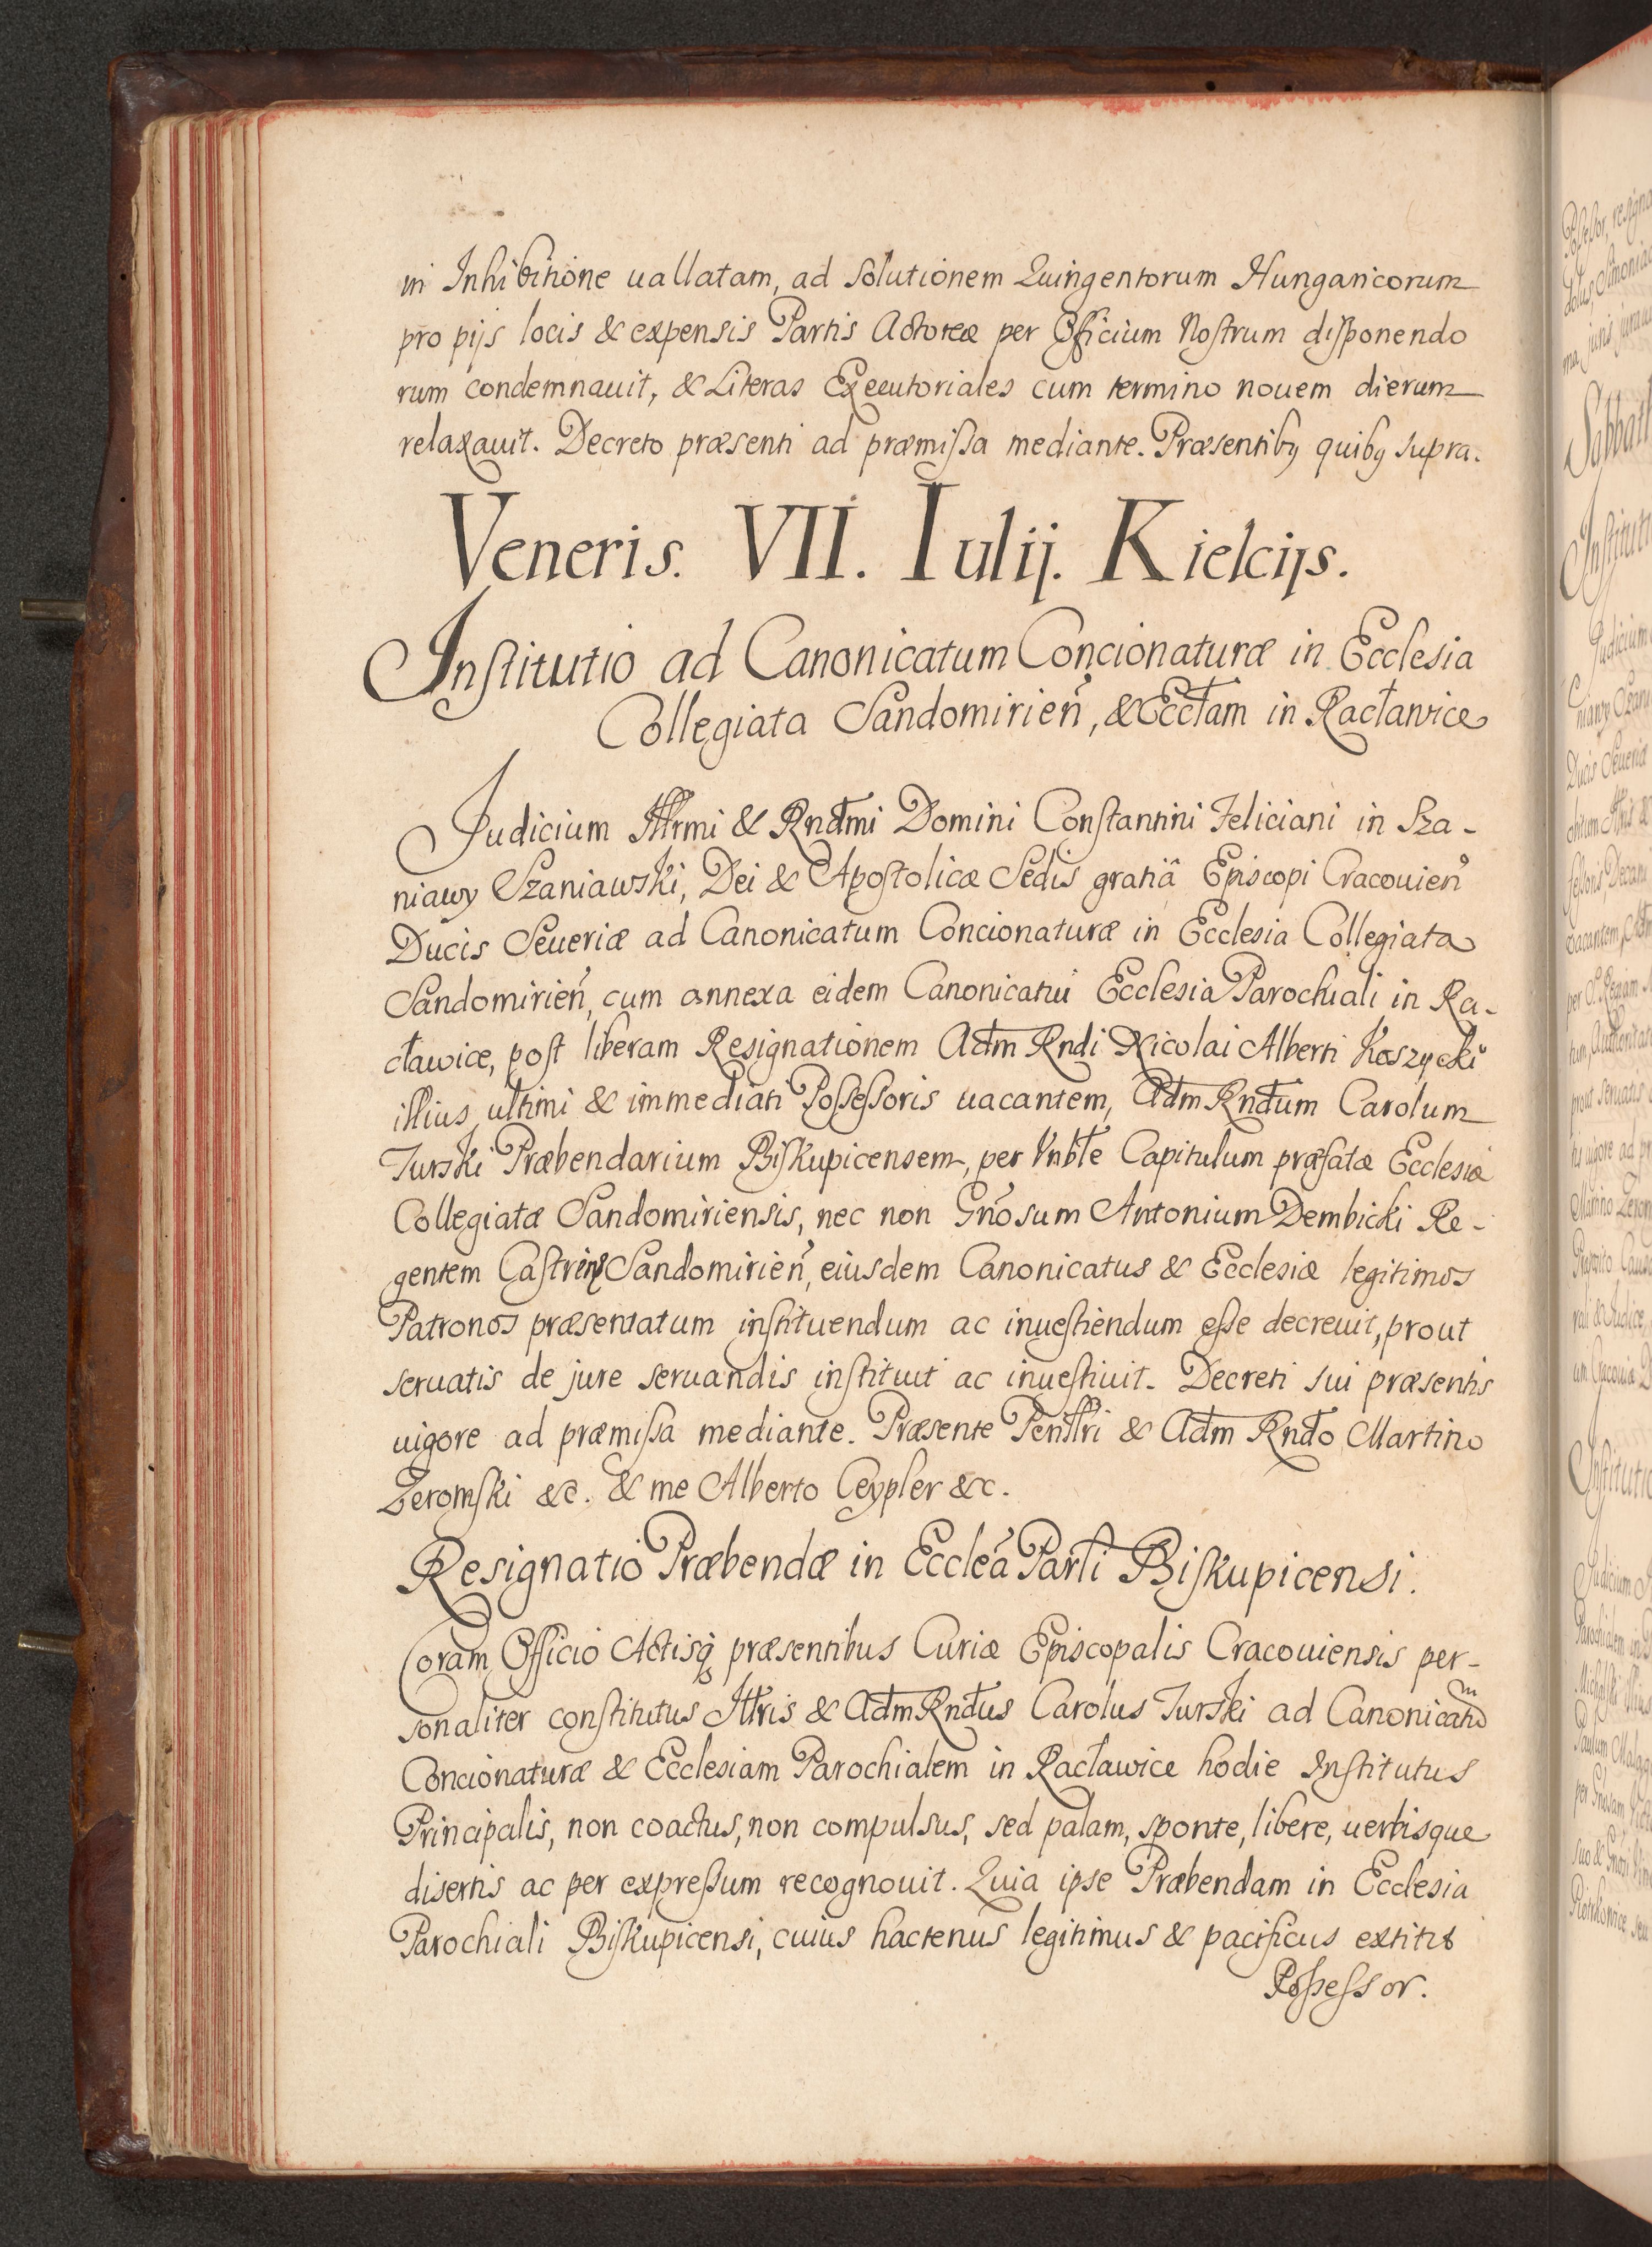 in Inhibitione uallatam, ad solutionem Quingentorum Hungaricorum
pro pijs locis & expensis Partis Actoreæ per Officium Nostrum disponendo
rum condemnauit, & Literas Executoriales cum termino nouem dierum
relaxauit. Decreto præsenti ad præmissa mediante. Præsentibq quibq supra.
Veneris. VII. Iulij. Kielcijs.
Institutio ad Canonicatum Concionaturæ in Ecclesia
Collegiata Sandomirien, & Eccłam in Racławice
Judicium Illrmi & Rndmi Domini Constantini Feliciani in Sza-
niawy Szaniawski, Dei & Apostolicæ Sedis gratiâ Episcopi Cracouien
Ducis Seueriæ ad Canonicatum Concionaturæ in Ecclesia Collegiata
Sandomirień, cum annexa eidem Canonicatui Ecclesia Parochiali in Ra-
cławice, post liberam Resignationem Adm Rndi Nicolai Alberti Koszycki
illius ultimi & immediati Possessoris uacantem, Adm Rndum Carolum
Turski Præbendarium Biskupicensem, per Vnble Capitulum præfatæ Ecclesiæ
Collegiatæ Sandomiriensis, nec non Gnosum Antonium Dembicki Re-
gentem Sandomirień, eiusdem Canonicatus & Ecclesiæ legitimos
Patronos præsentatum instituendum ac inuestiendum esse decreuit, prout
seruatis de jure seruandis instituit ac inuestiuit. Decreti sui præsentis
uigore ad præmissa mediante. Præsente & Adm Rndo Martino
Zeromski &c. & me Alberto Ceypler &c.
Resignatio Præbendæ in Eccleá Parłi Biskupicensi.
Coram Officio Actisq præsentibus Curiæ Episcopalis Cracouiensis per-
sonaliter constitutus Illris & Adm Rndus Carolus Turski ad Canonicatum
Concionaturæ & Ecclesiam Parochialem in Racławice hodie Institutus
Principalis, non coactus, non compulsus, sed palam, sponte, libere, uerbisque
disertis ac per expressum recognouit. Quia ipse Præbendam in Ecclesia
Parochiali Biskupicensi, cuius hactenus legitimus & pacificus extitit
Possessor.